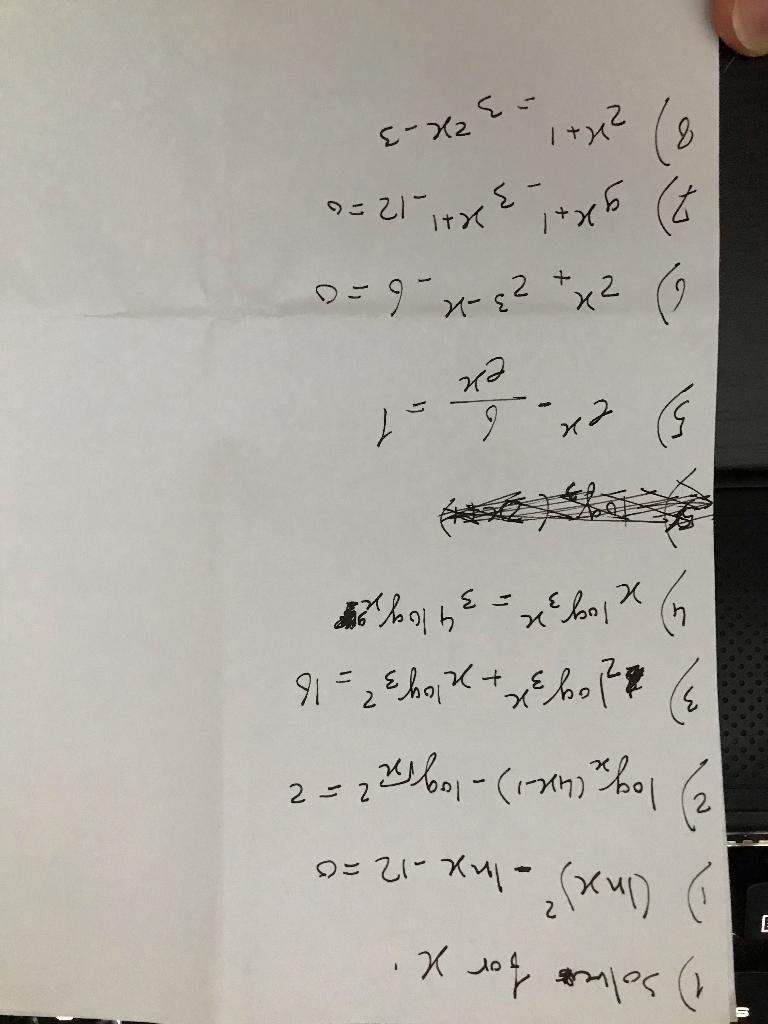 1) Solve for x.
1) (ln x)² - ln x - 12 = 0
2) log_x (4x-1) - log_√x 2 = 2
3) 2^(log_3 x) + x^(log_3 2) = 16
4) x^(log_3 x) = 3^(4 log x)
5) e^x - 6/e^x = 1
6) 2^x + 2^(3-x) - 6 = 0
7) 9^(x+1) - 3^(x+1) - 12 = 0
8) 2^(x+1) = 3^(2x-3)